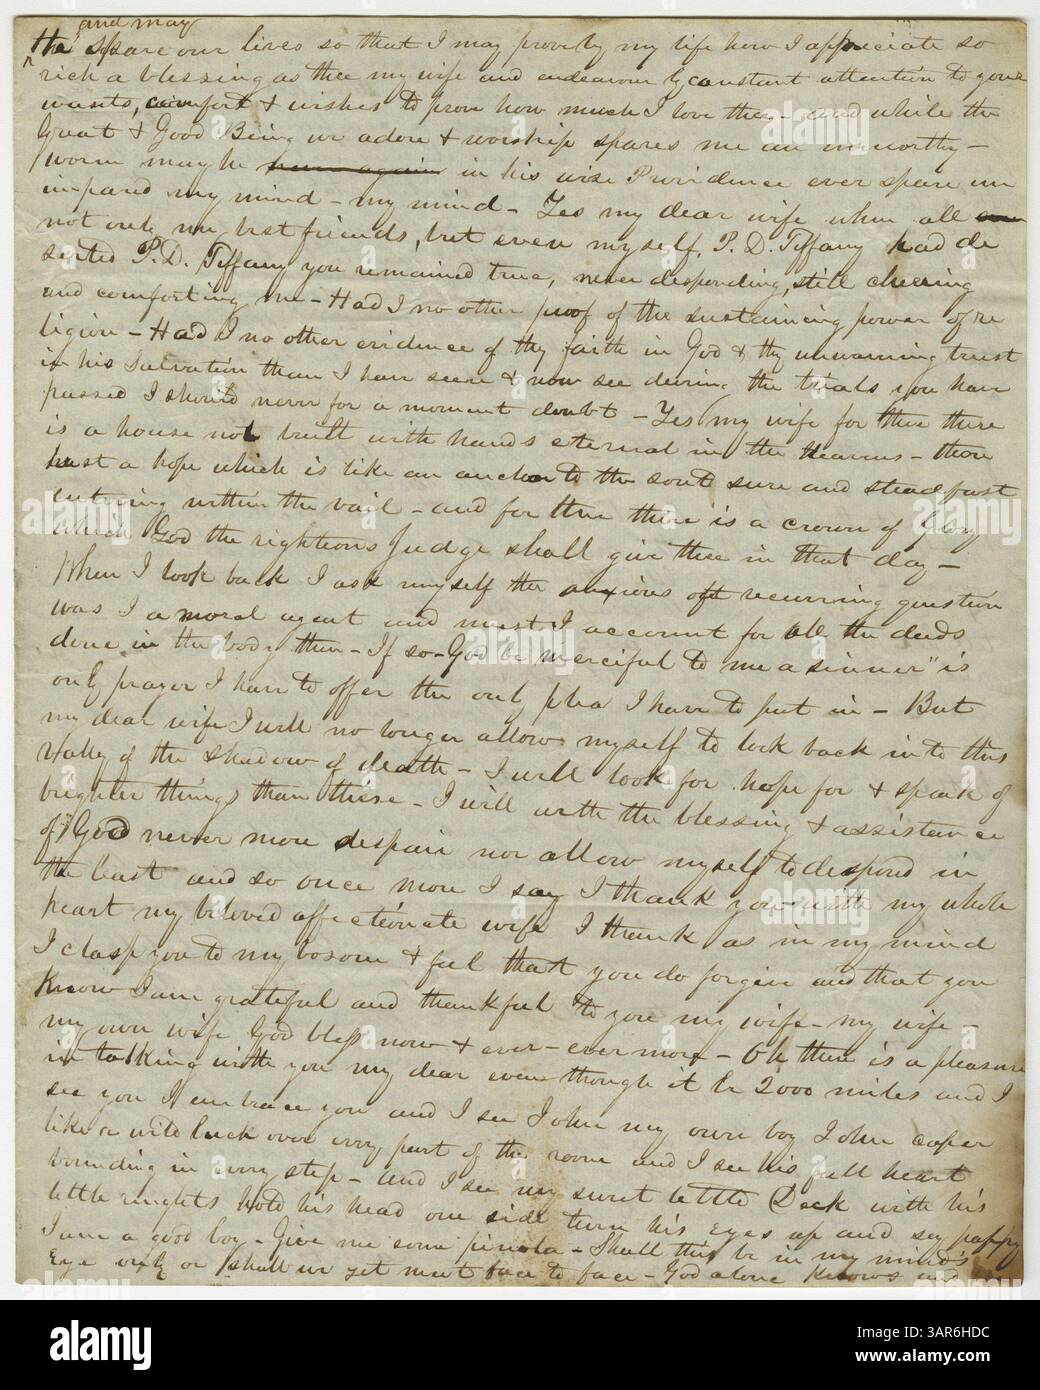 and may
the spare our lives so that I may prove by my life how I appreciate so
rich a blessing as thee my wife and endeavour by constant attention to your
wants, comfort & wishes to prove how much I love thee - and while the
Great & Good Being we adore & worship spares me an unworthy -
worm may he in his wise Providence ever spare un
impared my mind - my mind - Yes my dear wife when all
not only my best friends, but even myself, P. D. Tiffany had de
serted P. D. Tiffany you remained true, never desponding, still cheering
and comforting me - Had I no other proof of the sustaining power of re
ligion - Had I no other evidence of thy faith in God & thy unwavering trust
in his Salvation than I have seen & now see during the trials you have
passed I should never for a moment doubt - Yes my wife for thee there
is a house not built with hands eternal in the Heavens - thou
hast a hope which is like an anchor to the soul sure and steadfast
entering within the vail - and for thee there is a crown of Glory
which God the righteous Judge shall give thee in that day -
When I look back I ask myself the anxious oft recurring question
was I a moral agent and must I account for all the deeds
done in the body then - If so - God be merciful to me a sinner" is
only prayer I have to offer the only plea I have to put in - But
my dear wife I will no longer allow myself to look back into this
vally of the shadow of death - I will look for hope for & speak of
brighter things than these - I will with the blessing & assistance
of God never more despair nor allow myself to despond in
the least and so once more I say I thank you with my whole
heart my beloved affectionate wife I thank as in my mind
I clasp you to my bosom & feel that you do forgive and that you
know I am grateful and thankful to you my wife - my wife -
my own wife God bless now & ever - ever more - Oh there is a pleasure
in talking with you my dear even though it be 2000 miles and I
see you I embrace you and I see John my own boy John caper
like a wild buck over every part of the room and I see his full heart
bounding in every step - and I see my sweet little Deck with his
little ringlets hold his head one side turn his Eyes up and say pappy
I am a good boy - Give me some pinola - Shall this be in my mind's
Eye only or shall we yet meet face to face - God alone knows and
alamy
Image ID: 3AR6HDC
www.alamy.com